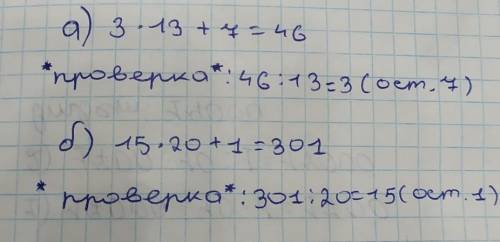 а) 3 · 13 + 7 = 46
*проверка*: 46 : 13 = 3 (ост. 7)
б) 15 · 20 + 1 = 301
* проверка*: 301 : 20 = 15 (ост. 1)